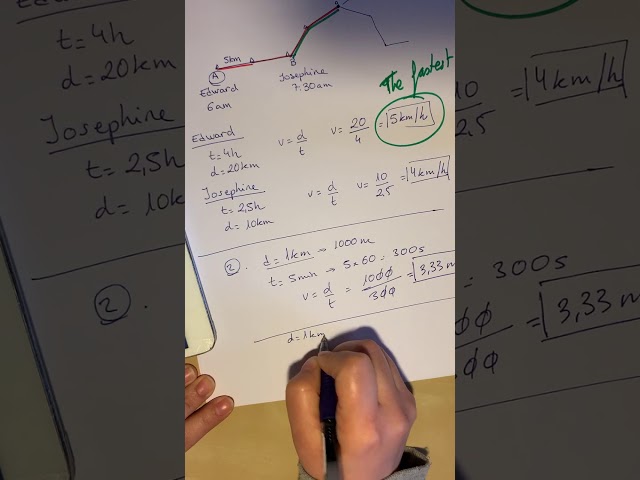 5km
A
B
Edward
6am
Josephine
7:30am
The fastest
Edward
t=4h
d=20km
v=d/t
v=20/4
=5km/h
Josephine
t=2,5h
d=10km
v=d/t
v=10/2,5
=4km/h
2.
d=1km → 1000m
t=5min → 5x60=300s
v=d/t = 1000/300 = 3,33 m
d=1km
t=4h
d=20km
Josephine
t=2,5h
d=10k
2.
10/2,5 = 4km/h
= 300s
= 3,33 m